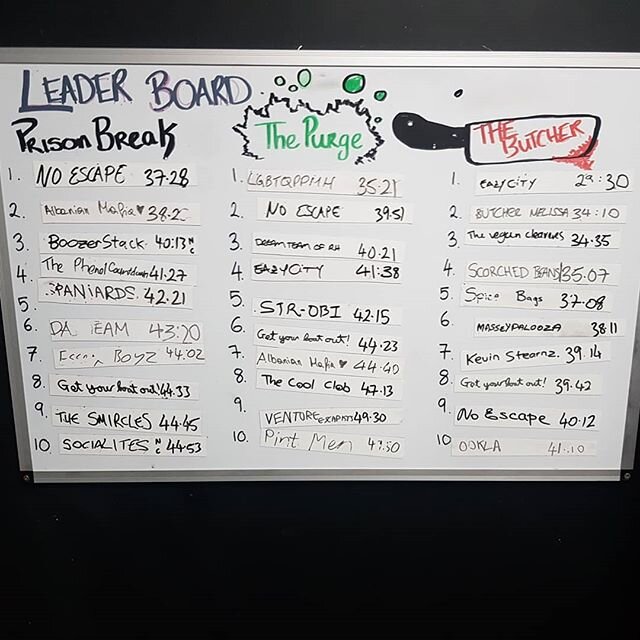 LEADER BOARD
Prison Break
1. NO ESCAPE 37:28
2. Albanian Mafia ♥ 38:2
3. BoozerStack. 40:13 NC
4. The Phenol Countdown 41:27
5. SPANiARDS. 42.21
6. DA TEAM 43:20
7. BOYZ 44:02
8. Get your boat out! 44:33
9. THE SMIRCLES 44:45
10. SOCIALITES NC 44:53
The Purge
1. LGBTQPPIHH 35:21
2. NO ESCAPE 39:51
3. DREAM TEAM OF RH 40:21
4. EAZYCITY 41:38
5. STR-OBI 42:15
6. Get your boat out! 44:23
7. Albanian Mafia ♥ 44:40
8. The Cool Club 47:13
9. VENTURE 49:30
10. Pint Men
THE BUTCHER
1. EAZYCITY 29:30
2. BUTCHER MELISSA 34:10
3. The vegan cleavers 34:35
4. SCORCHED BEANS 35:07
5. Spice Bags 37:08
6. MASSEYPALOOZA 38:11
7. Kevin Stearnz. 39:14
8. Get your boat out! 39:42
9. No Escape 40:12
10 OOKLA 41:10